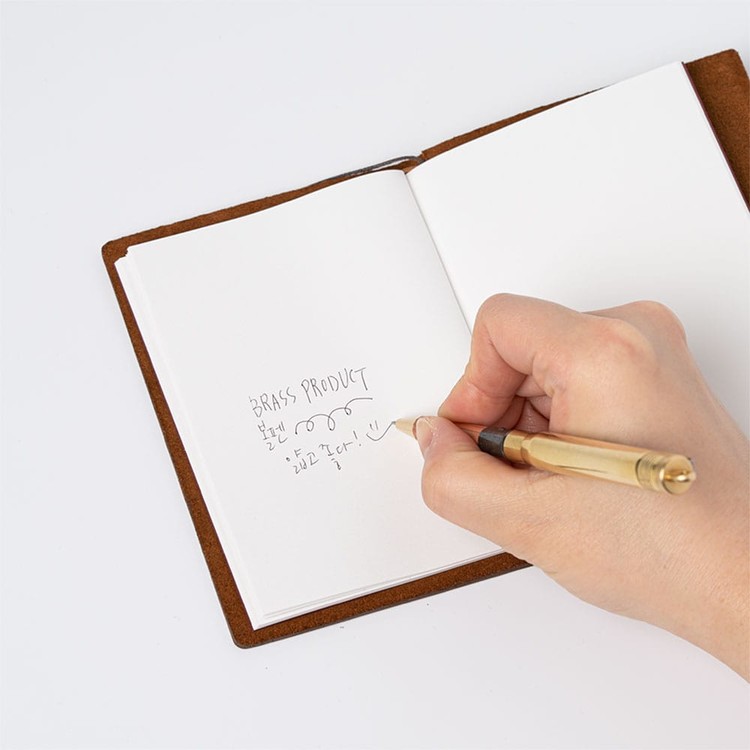 BRASS PRODUCT
볼펜
얇고 좋다! =)